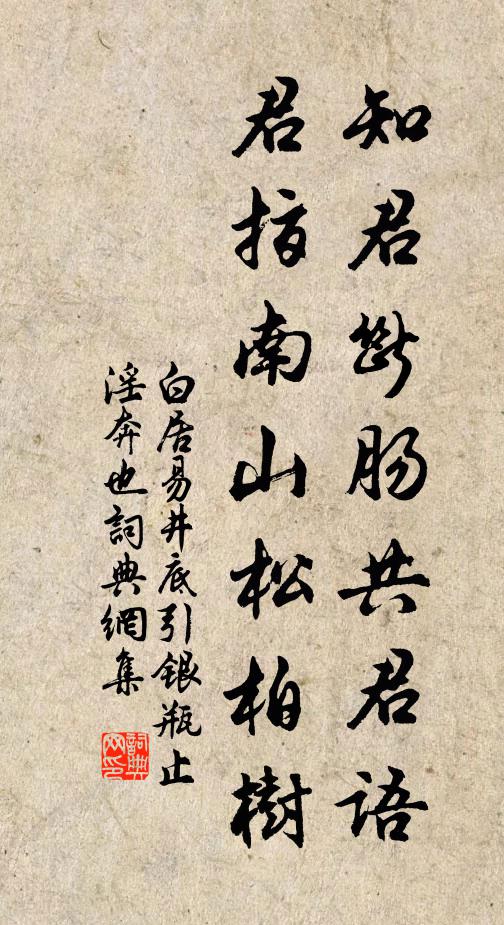 知君斷腸共君語
君指南山松柏樹
白居易井底引銀瓶止
淫奔也詞典網集
詞典
网印